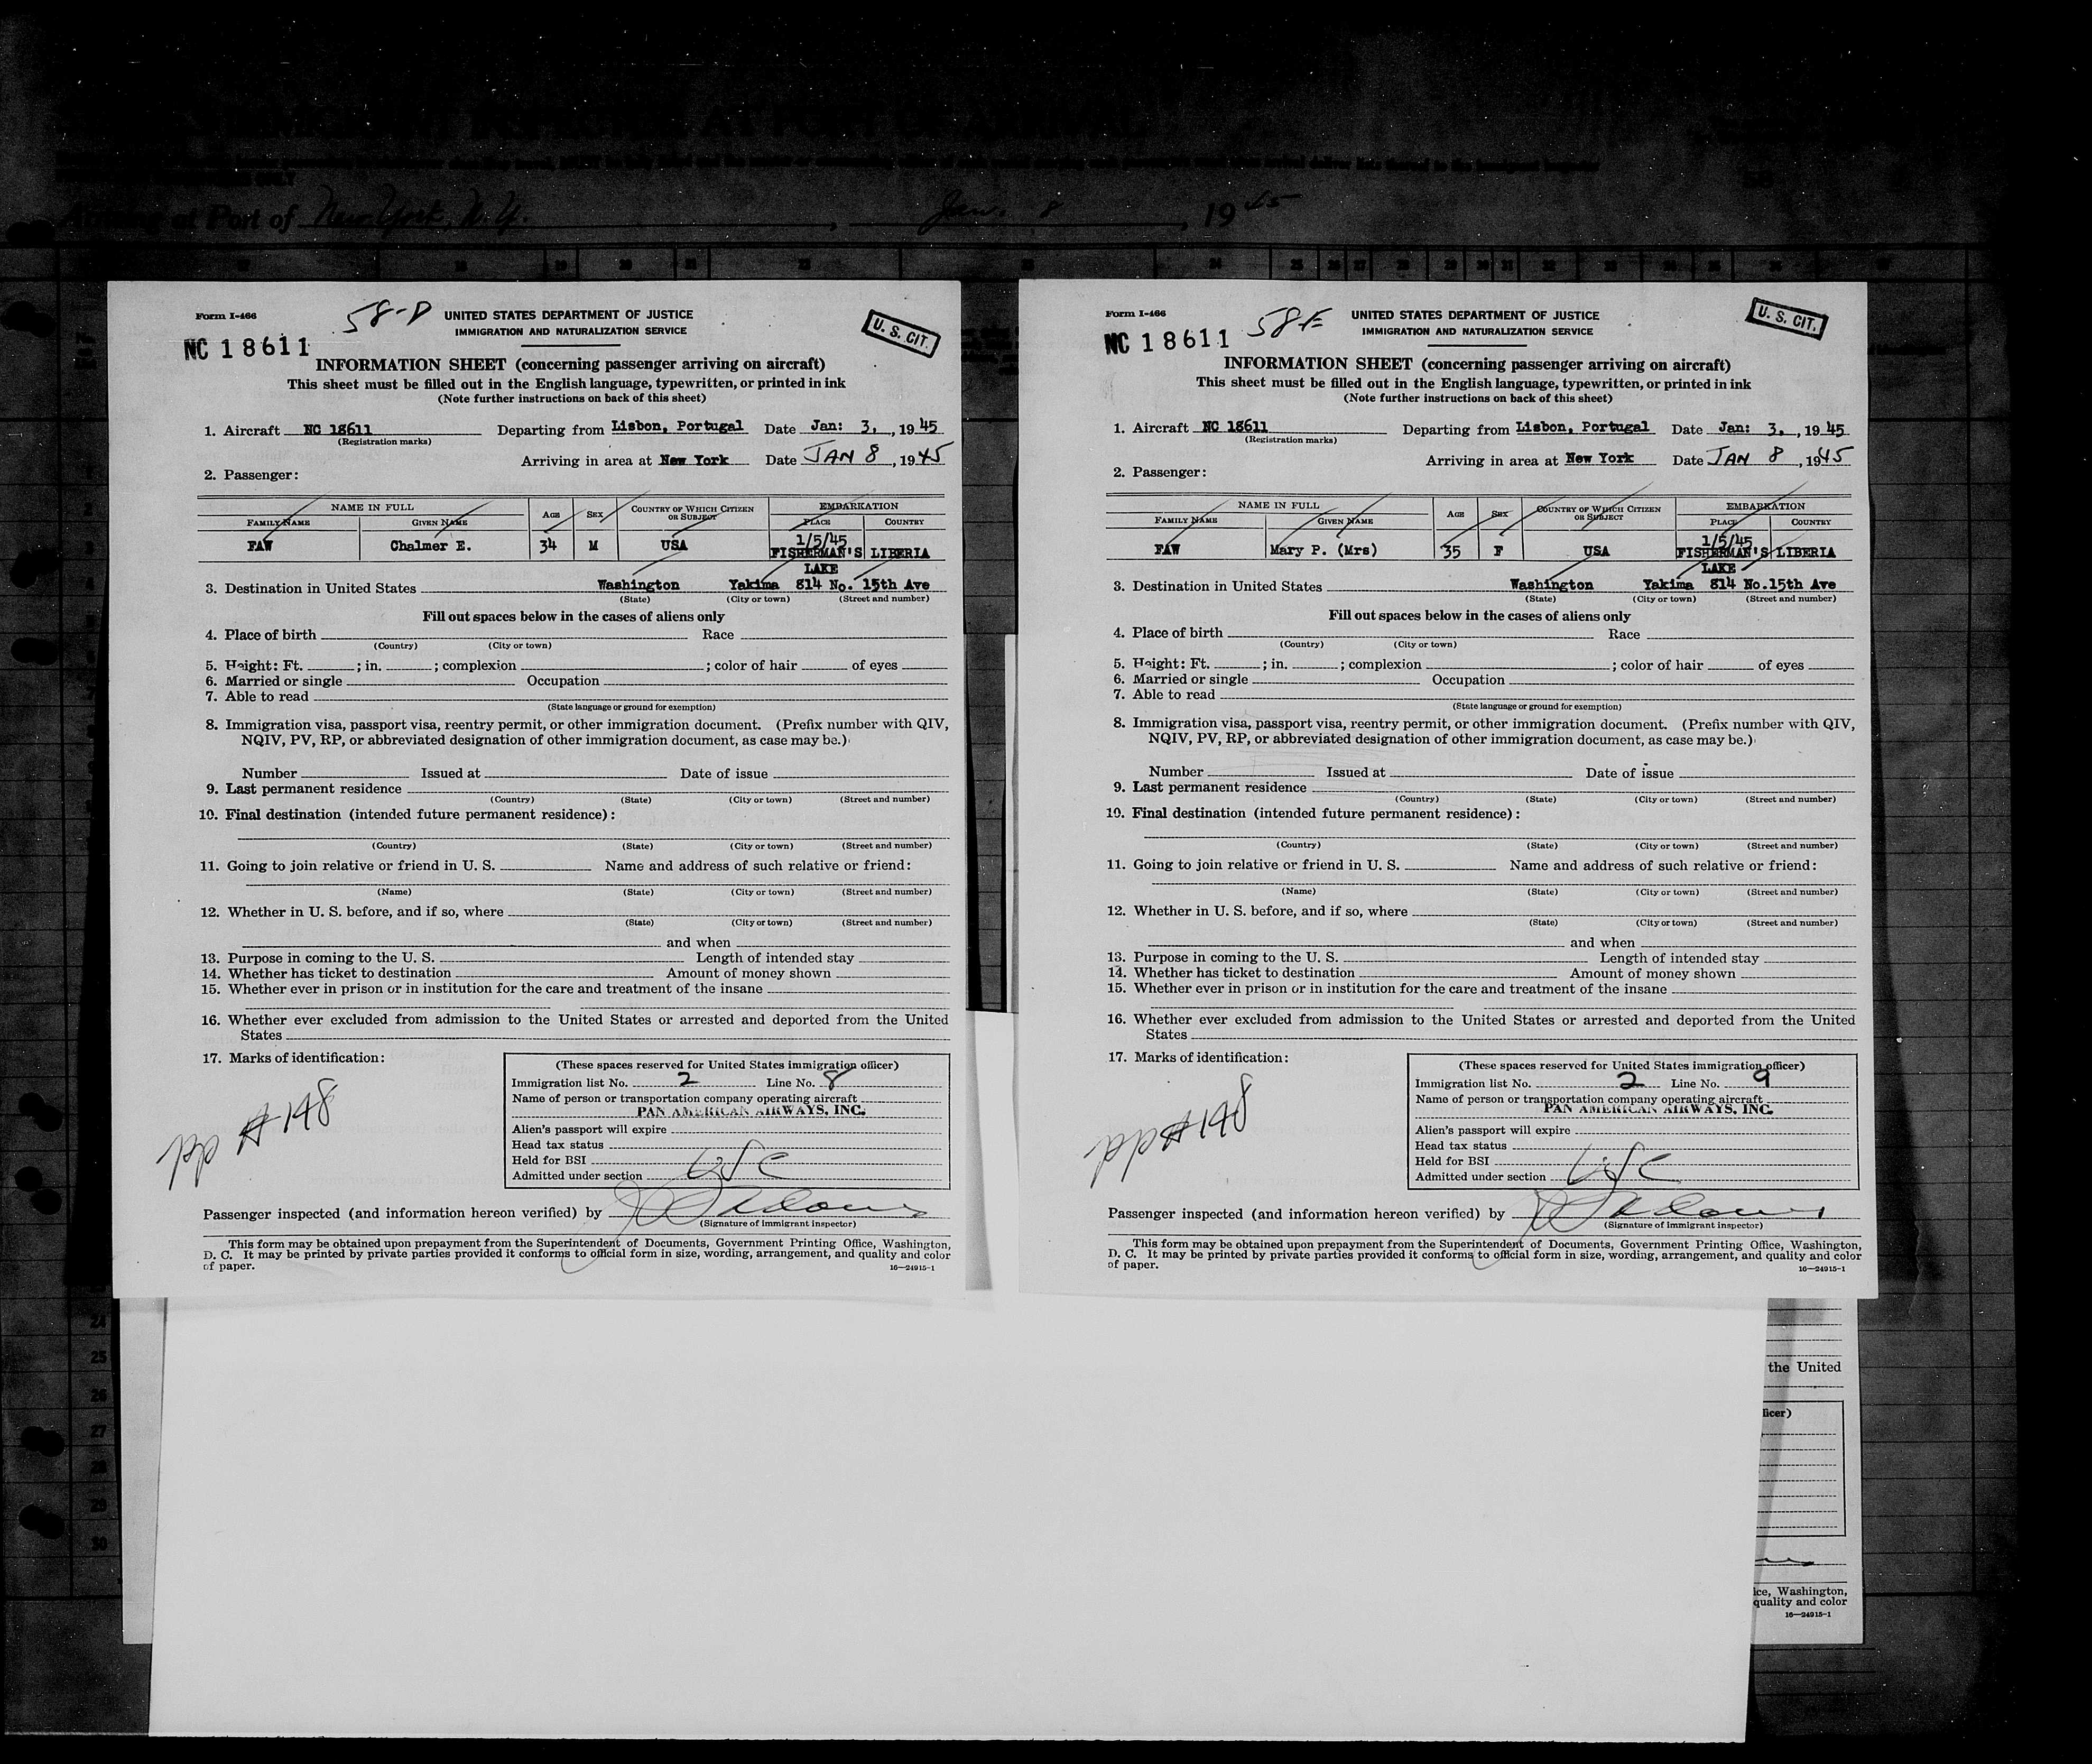 Arriving at Port of New York, N. Y. , Jan. 8 , 19 45
Form I-466
58-D
UNITED STATES DEPARTMENT OF JUSTICE
IMMIGRATION AND NATURALIZATION SERVICE
U. S. CIT.
NC 18611
INFORMATION SHEET (concerning passenger arriving on aircraft)
This sheet must be filled out in the English language, typewritten, or printed in ink
(Note further instructions on back of this sheet)
1. Aircraft NC 18611 Departing from Lisbon, Portugal Date Jan: 3, , 19 45
(Registration marks)
Arriving in area at New York Date JAN 8 , 1945
2. Passenger:
NAME IN FULL AGE SEX COUNTRY OF WHICH CITIZEN OR SUBJECT EMBARKATION
FAMILY NAME GIVEN NAME PLACE COUNTRY
1/5/45
FAW Chalmer E. 34 M USA FISHERMAN'S LIBERIA
LAKE
3. Destination in United States Washington Yakima 814 No. 15th Ave
(State) (City or town) (Street and number)
Fill out spaces below in the cases of aliens only
4. Place of birth Race
(Country) (City or town)
5. Height: Ft. ; in. ; complexion ; color of hair of eyes
6. Married or single Occupation
7. Able to read
(State language or ground for exemption)
8. Immigration visa, passport visa, reentry permit, or other immigration document. (Prefix number with QIV,
NQIV, PV, RP, or abbreviated designation of other immigration document, as case may be.)
Number Issued at Date of issue
9. Last permanent residence
(Country) (State) (City or town) (Street and number)
10. Final destination (intended future permanent residence):
(Country) (State) (City or town) (Street and number)
11. Going to join relative or friend in U. S. Name and address of such relative or friend:
(Name) (State) (City or town) (Street and number)
12. Whether in U. S. before, and if so, where
(State) (City or town) (Street and number)
and when
13. Purpose in coming to the U. S. Length of intended stay
14. Whether has ticket to destination Amount of money shown
15. Whether ever in prison or in institution for the care and treatment of the insane
16. Whether ever excluded from admission to the United States or arrested and deported from the United
States
17. Marks of identification:
(These spaces reserved for United States immigration officer)
Immigration list No. 2 Line No. 8
Name of person or transportation company operating aircraft
PAN AMERICAN AIRWAYS, INC.
Alien's passport will expire
Head tax status
Held for BSI
Admitted under section USC
#148
Passenger inspected (and information hereon verified) by
(Signature of immigrant inspector)
This form may be obtained upon prepayment from the Superintendent of Documents, Government Printing Office, Washington,
D. C. It may be printed by private parties provided it conforms to official form in size, wording, arrangement, and quality and color
of paper.
16—24915-1
Form I-466
58-E
UNITED STATES DEPARTMENT OF JUSTICE
IMMIGRATION AND NATURALIZATION SERVICE
U. S. CIT.
NC 18611
INFORMATION SHEET (concerning passenger arriving on aircraft)
This sheet must be filled out in the English language, typewritten, or printed in ink
(Note further instructions on back of this sheet)
1. Aircraft NC 18611 Departing from Lisbon, Portugal Date Jan: 3, , 19 45
(Registration marks)
Arriving in area at New York Date JAN 8 , 1945
2. Passenger:
NAME IN FULL AGE SEX COUNTRY OF WHICH CITIZEN OR SUBJECT EMBARKATION
FAMILY NAME GIVEN NAME PLACE COUNTRY
1/5/45
FAW Mary P. (Mrs) 35 F USA FISHERMAN'S LIBERIA
LAKE
3. Destination in United States Washington Yakima 814 No.15th Ave
(State) (City or town) (Street and number)
Fill out spaces below in the cases of aliens only
4. Place of birth Race
(Country) (City or town)
5. Height: Ft. ; in. ; complexion ; color of hair of eyes
6. Married or single Occupation
7. Able to read
(State language or ground for exemption)
8. Immigration visa, passport visa, reentry permit, or other immigration document. (Prefix number with QIV,
NQIV, PV, RP, or abbreviated designation of other immigration document, as case may be.)
Number Issued at Date of issue
9. Last permanent residence
(Country) (State) (City or town) (Street and number)
10. Final destination (intended future permanent residence):
(Country) (State) (City or town) (Street and number)
11. Going to join relative or friend in U. S. Name and address of such relative or friend:
(Name) (State) (City or town) (Street and number)
12. Whether in U. S. before, and if so, where
(State) (City or town) (Street and number)
and when
13. Purpose in coming to the U. S. Length of intended stay
14. Whether has ticket to destination Amount of money shown
15. Whether ever in prison or in institution for the care and treatment of the insane
16. Whether ever excluded from admission to the United States or arrested and deported from the United
States
17. Marks of identification:
(These spaces reserved for United States immigration officer)
Immigration list No. 2 Line No. 9
Name of person or transportation company operating aircraft
PAN AMERICAN AIRWAYS, INC.
Alien's passport will expire
Head tax status
Held for BSI
Admitted under section USC
#148
Passenger inspected (and information hereon verified) by
(Signature of immigrant inspector)
This form may be obtained upon prepayment from the Superintendent of Documents, Government Printing Office, Washington,
D. C. It may be printed by private parties provided it conforms to official form in size, wording, arrangement, and quality and color
of paper.
16—24915-1
the United
ficer)
ice, Washington,
quality and color
16—24915-1
24
25
26
27
28
29
30